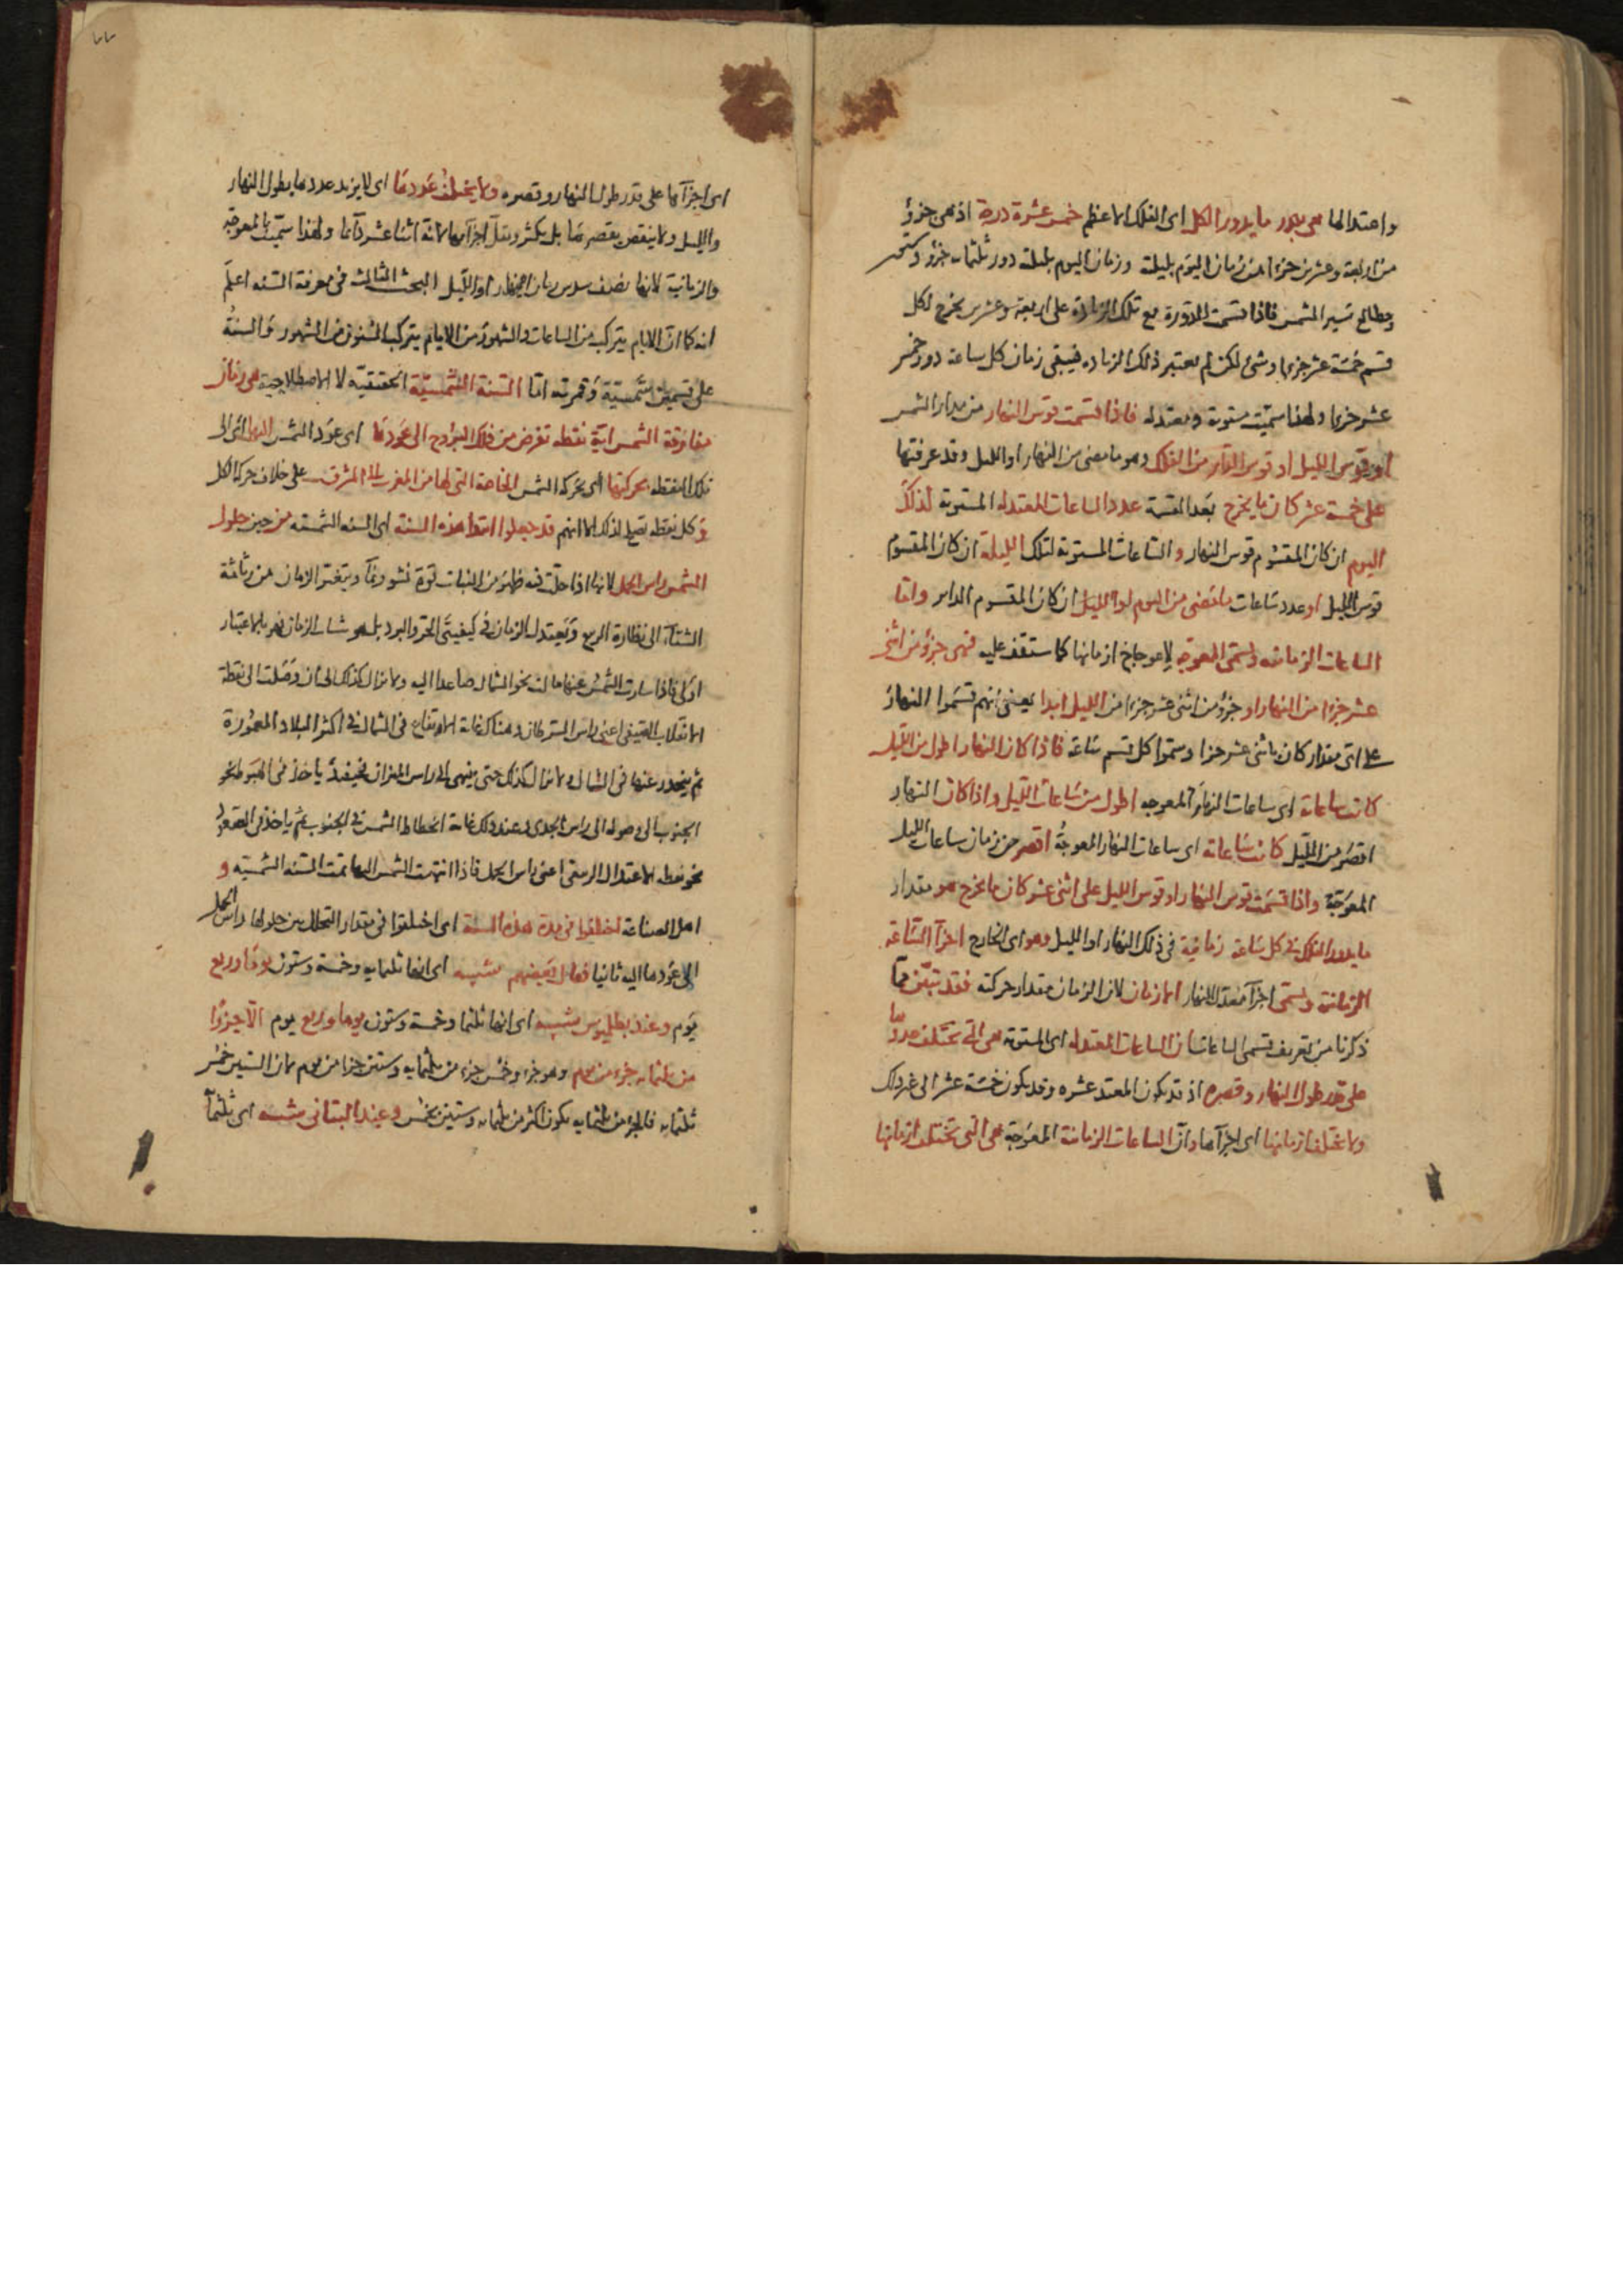 واعتدالها هي بدور ما يدور الكل اى الفلك الاعظم خمس عشرة درجة اذ هى جزؤ
من اربعة وعشرين جزءا من زمان اليوم بليلته وزمان اليوم بليلته دور ثلثمايه جزؤ وستين
ومطالع سير الشمس فاذا قسمت الدورة مع تلك الزيادة على اربعة وعشرين يخرج لكل
قسم خمسة عشر جزءا وشئ لكن لم يعتبر ذلك الزياده فيبقى زمان كل ساعة دور خمس
عشر جزءا ولهذا سميت مستوية ومعتدله فاذا قسمت قوس النهار من مدار الشمس
او قوس الليل او قوس الداير من الفلك وهو ما مضى من النهار او الليل وقد عرفتها
على خمسة عشر كان ما يخرج بعد القسمة عدد الساعات المعتدله المستوية لذلك
اليوم ان كان المقسوم قوس النهار والساعات المستوية لتلك الليلة ان كان المقسوم
قوس الليل او عدد ساعات ما مضى من اليوم او الليل ان كان المقسوم الداير واما
الساعات الزمانيه وتسمى المعوجه لاعوجاج ازمانها كما ستقف عليه فهى جزؤ من اثنى
عشر جزءا من النهار او جزؤ من اثنى عشر جزءا من الليل ابدا يعنى انهم قسموا النهار
على اى مقدار كان باثنى عشر جزءا وسموا كل قسم ساعة فاذا كان النهار اطول من الليل
كانت ساعاته اى ساعات المعوجه اطول من ساعات الليل واذا كان النهار
اقصر من الليل كانت ساعاته اى ساعات النهار المعوجة اقصر من زمان ساعات الليل
المعوجة واذا قسمت قوس النهار او قوس الليل على اثنى عشر كان ما يخرج هو مقدار
ما يدور الفلك فى كل ساعة زمانية فى ذلك النهار او الليل وهو اى الخارج اجزآ الساعة
الزمانية وتسمى اجزآ معدل النهار ازمان لان الزمان مقدار حركته فقد تبين مما
ذكرنا من تعريف قسمى الساعات ان الساعات المعتدله اى المستوية هى التى تختلف عددها
على قدر طول النهار وقصره اذ قد يكون عشره وقد يكون خمسة عشر الى غير ذلك
ولا تختلف ازمانها اى اجزآها وان الساعات الزمانية المعوجة هى التى تختلف ازمانها
اى اجزآها على قدر طول النهار وقصره ولا يختلف عددها اى لا يزيد عددها بطول النهار
والليل ولا ينقص بقصرها بل يكثر ويقل اجزآها لانه اثنا عشر دائما ولهذا سميت بالمعوجة
والزمانية لانها نصف سدس زمان النهار او الليل البحث الثالث فى معرفة السنه اعلم
انه كما ان الايام يتركب من الساعات والشهور من الايام يتركب السنون من الشهور والسنة
على قسمين شمسية وقمريه اما السنة الشمسية الحقيقية لا الاصطلاحية هى زمان
مفارقة الشمس اية نقطة تفرض من فلك البروج الى عودها اى عود الشمس اليها اى الى
تلك النقطه بحركتها اى بحركة الشمس الخاصة التى لها من المغرب الى المشرق على خلاف حركة الكل
وكل نقطه تصلح لذلك الا انهم قد جعلوا ابتدا هذه السنة اى السنه الشمسيه من حين حلول
الشمس راس الحمل لانها اذا حلت فيه ظهر من النبات قوة نشو ونمآ ويتغير الزمان من رثاثة
الشتآ الى نظارة الربيع ويعتدل الزمان فى كيفيتى الحر والبرد بل هو شباب الزمان فهو بالاعتبار
اولى فاذا سارت الشمس عنها مالت نحو الشمال صاعدا اليه ولا تزال كذلك الى ان وصلت الى نقطة
الانقلاب الصيفى اعنى راس السرطان وهناك غاية الارتفاع فى الشمال فى اكثر البلاد المعمورة
ثم ينحدر عنها فى الشمال ولا تزال كذلك حتى ينتهى الى راس الميزان فحينئذ ياخذ فى الهبوط نحو
الجنوب الى وصوله الى راس الجدى وعند ذلك غاية انحطاط الشمس فى الجنوب ثم ياخذ فى الصعود
نحو نقطه الاعتدال الربيعى اعنى راس الحمل فاذا انتهت الشمس اليها تمت السنه الشمسيه و
اهل الصناعة اختلفوا فى مدة هذه السنة اى اختلفوا فى مقدار التحلل بين حلولها راس الحمل
الى عودها اليه ثانيا فقال بعضهم شسه اى انها ثلثمايه وخمسة وستون يوما وربع
يوم وعند بطليوس شسه اى انها ثلثمائة وخمسة وستون يوما وربع يوم الا جزوا
من ثلثمايه جزء من يوم وهو جزء وخمس جزء من ثلثمايه وستين جزءا من يوم لان الستين خمس
ثلثمايه فالجزء من ثلثمايه يكون اكثر من ثلثمايه وستين بخمس وعند البتانى شسه اى ثلثمآ